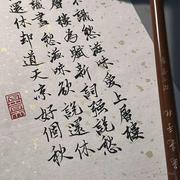 不識愁滋味愛上層樓
層樓為賦新詞強說愁
識盡愁滋味欲說還休
還休却道天涼好個秋